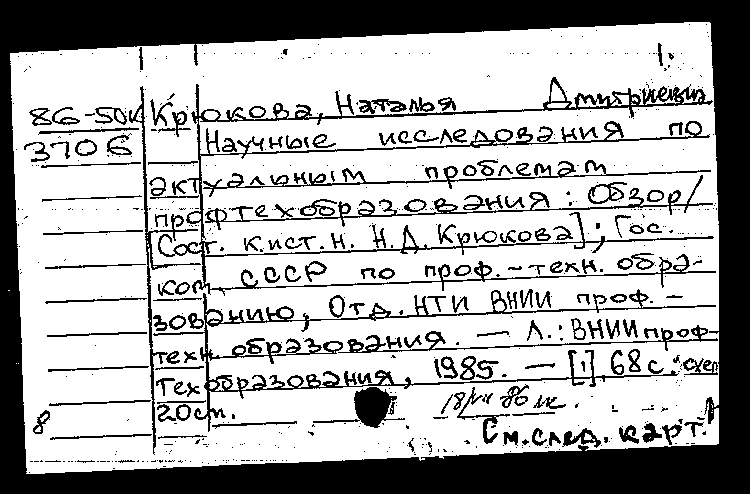 1.
86-50к Крюкова, Наталья Дмитриевна
3706 Научные исследования по
актуальным проблемам
профтехобразования: Обзор/
[Сост. к.ист.н. Н.Д. Крюкова]; Гос.
ком. СССР по проф.-техн. обра-
зованию, Отд. НТИ ВНИИ проф.-
техн. образования. — Л.: ВНИИ проф-
техобразования, 1985. — [1], 68 с.: схем
8 20 см. 86
См. след. карт.